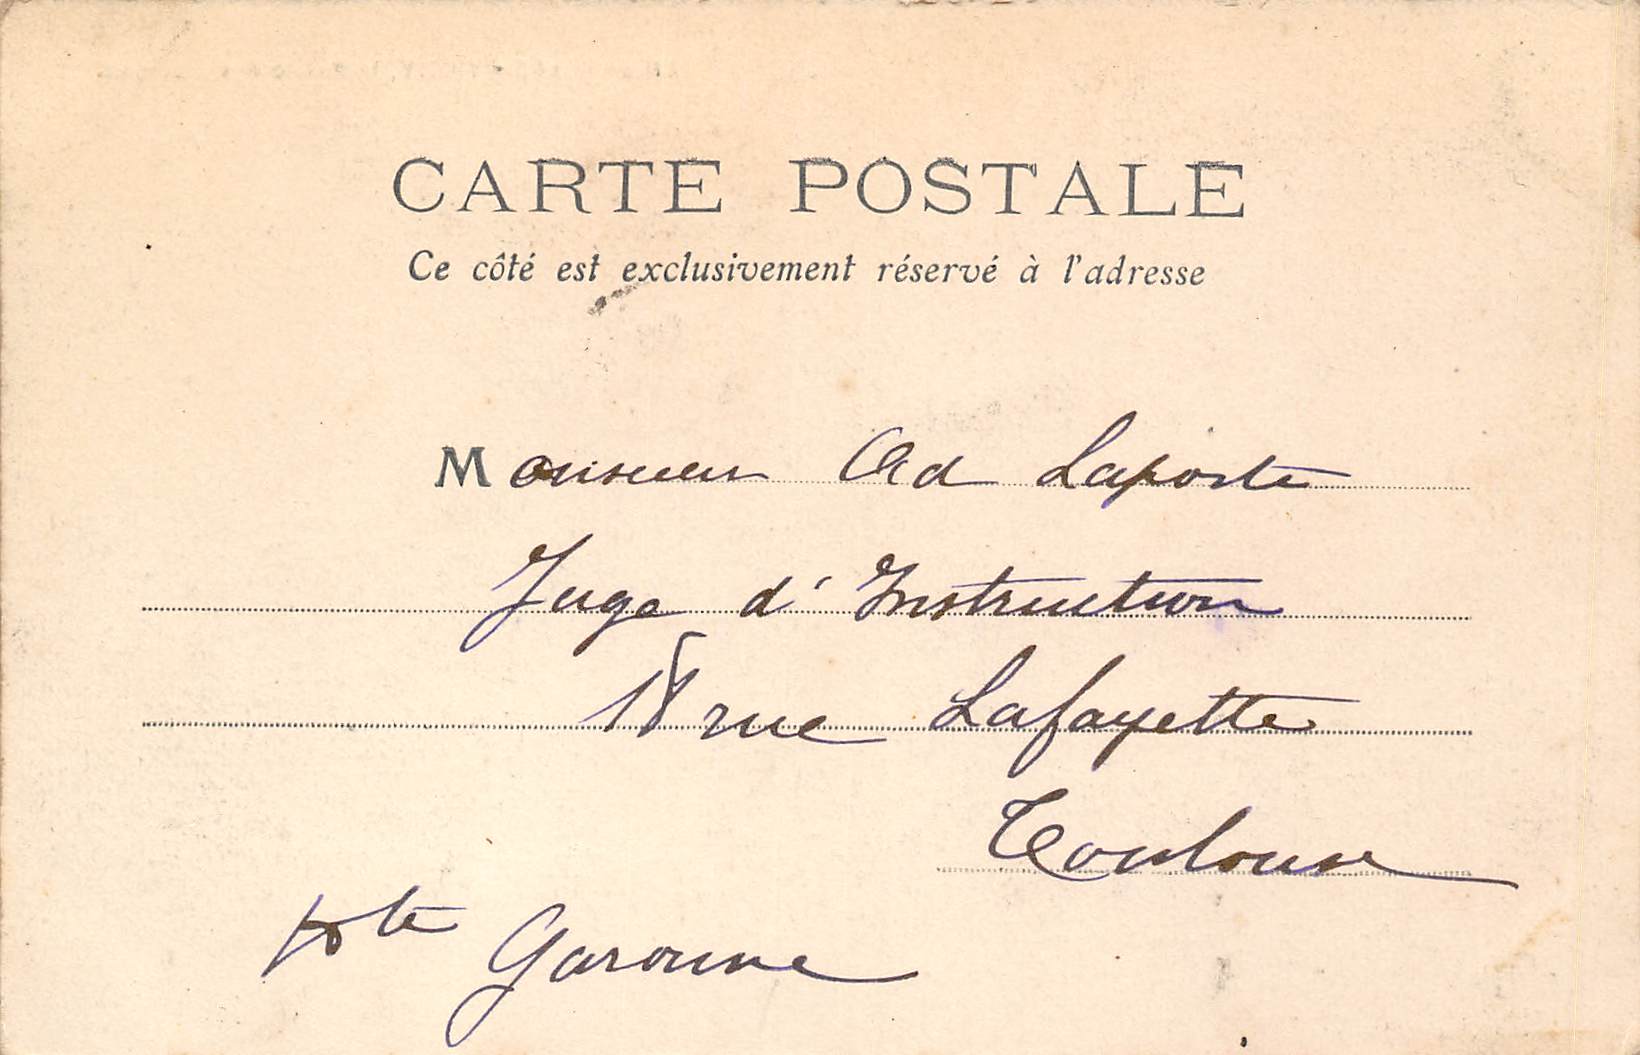 CARTE POSTALE
Ce côté est exclusivement réservé à l'adresse
Monsieur Ad Laporte
Juge d'Instruction
18 rue Lafayette
Toulouse
Hte Garonne